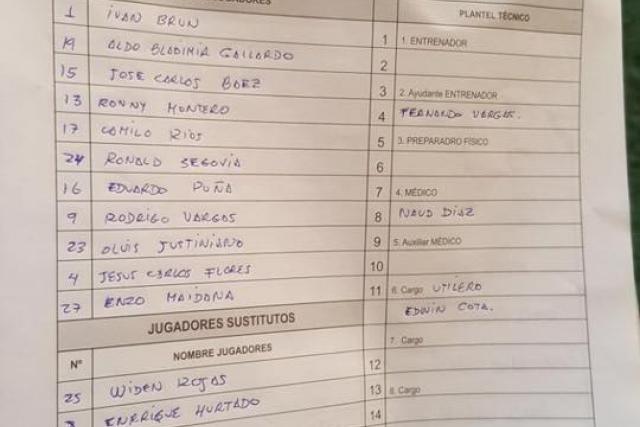 JUGADORES
PLANTEL TÉCNICO
1 IVAN BRUN
1 1. ENTRENADOR
19 ALDO BLADIMIR GALLARDO
2
15 JOSE CARLOS BAEZ
3 2. Ayudante ENTRENADOR
13 RONNY MONTERO
4 FERNANDO VARGAS.
17 CAMILO RIOS
5 3. PREPARADRO FÍSICO
24 RONALD SEGOVIA
6
16 EDUARDO PUÑA
7 4. MÉDICO
9 RODRIGO VARGAS
8 NAUD DIAZ
23 OLVIS JUSTINIANO
9 5. Auxiliar MÉDICO
4 JESUS CARLOS FLORES
10
27 ENZO MAIDANA
11 6. Cargo UTILERO
EDWIN COTA.
JUGADORES SUSTITUTOS
7. Cargo
Nº NOMBRE JUGADORES
12
25 WIDEN ROJAS
13 8. Cargo
ENRRIQUE HURTADO
14